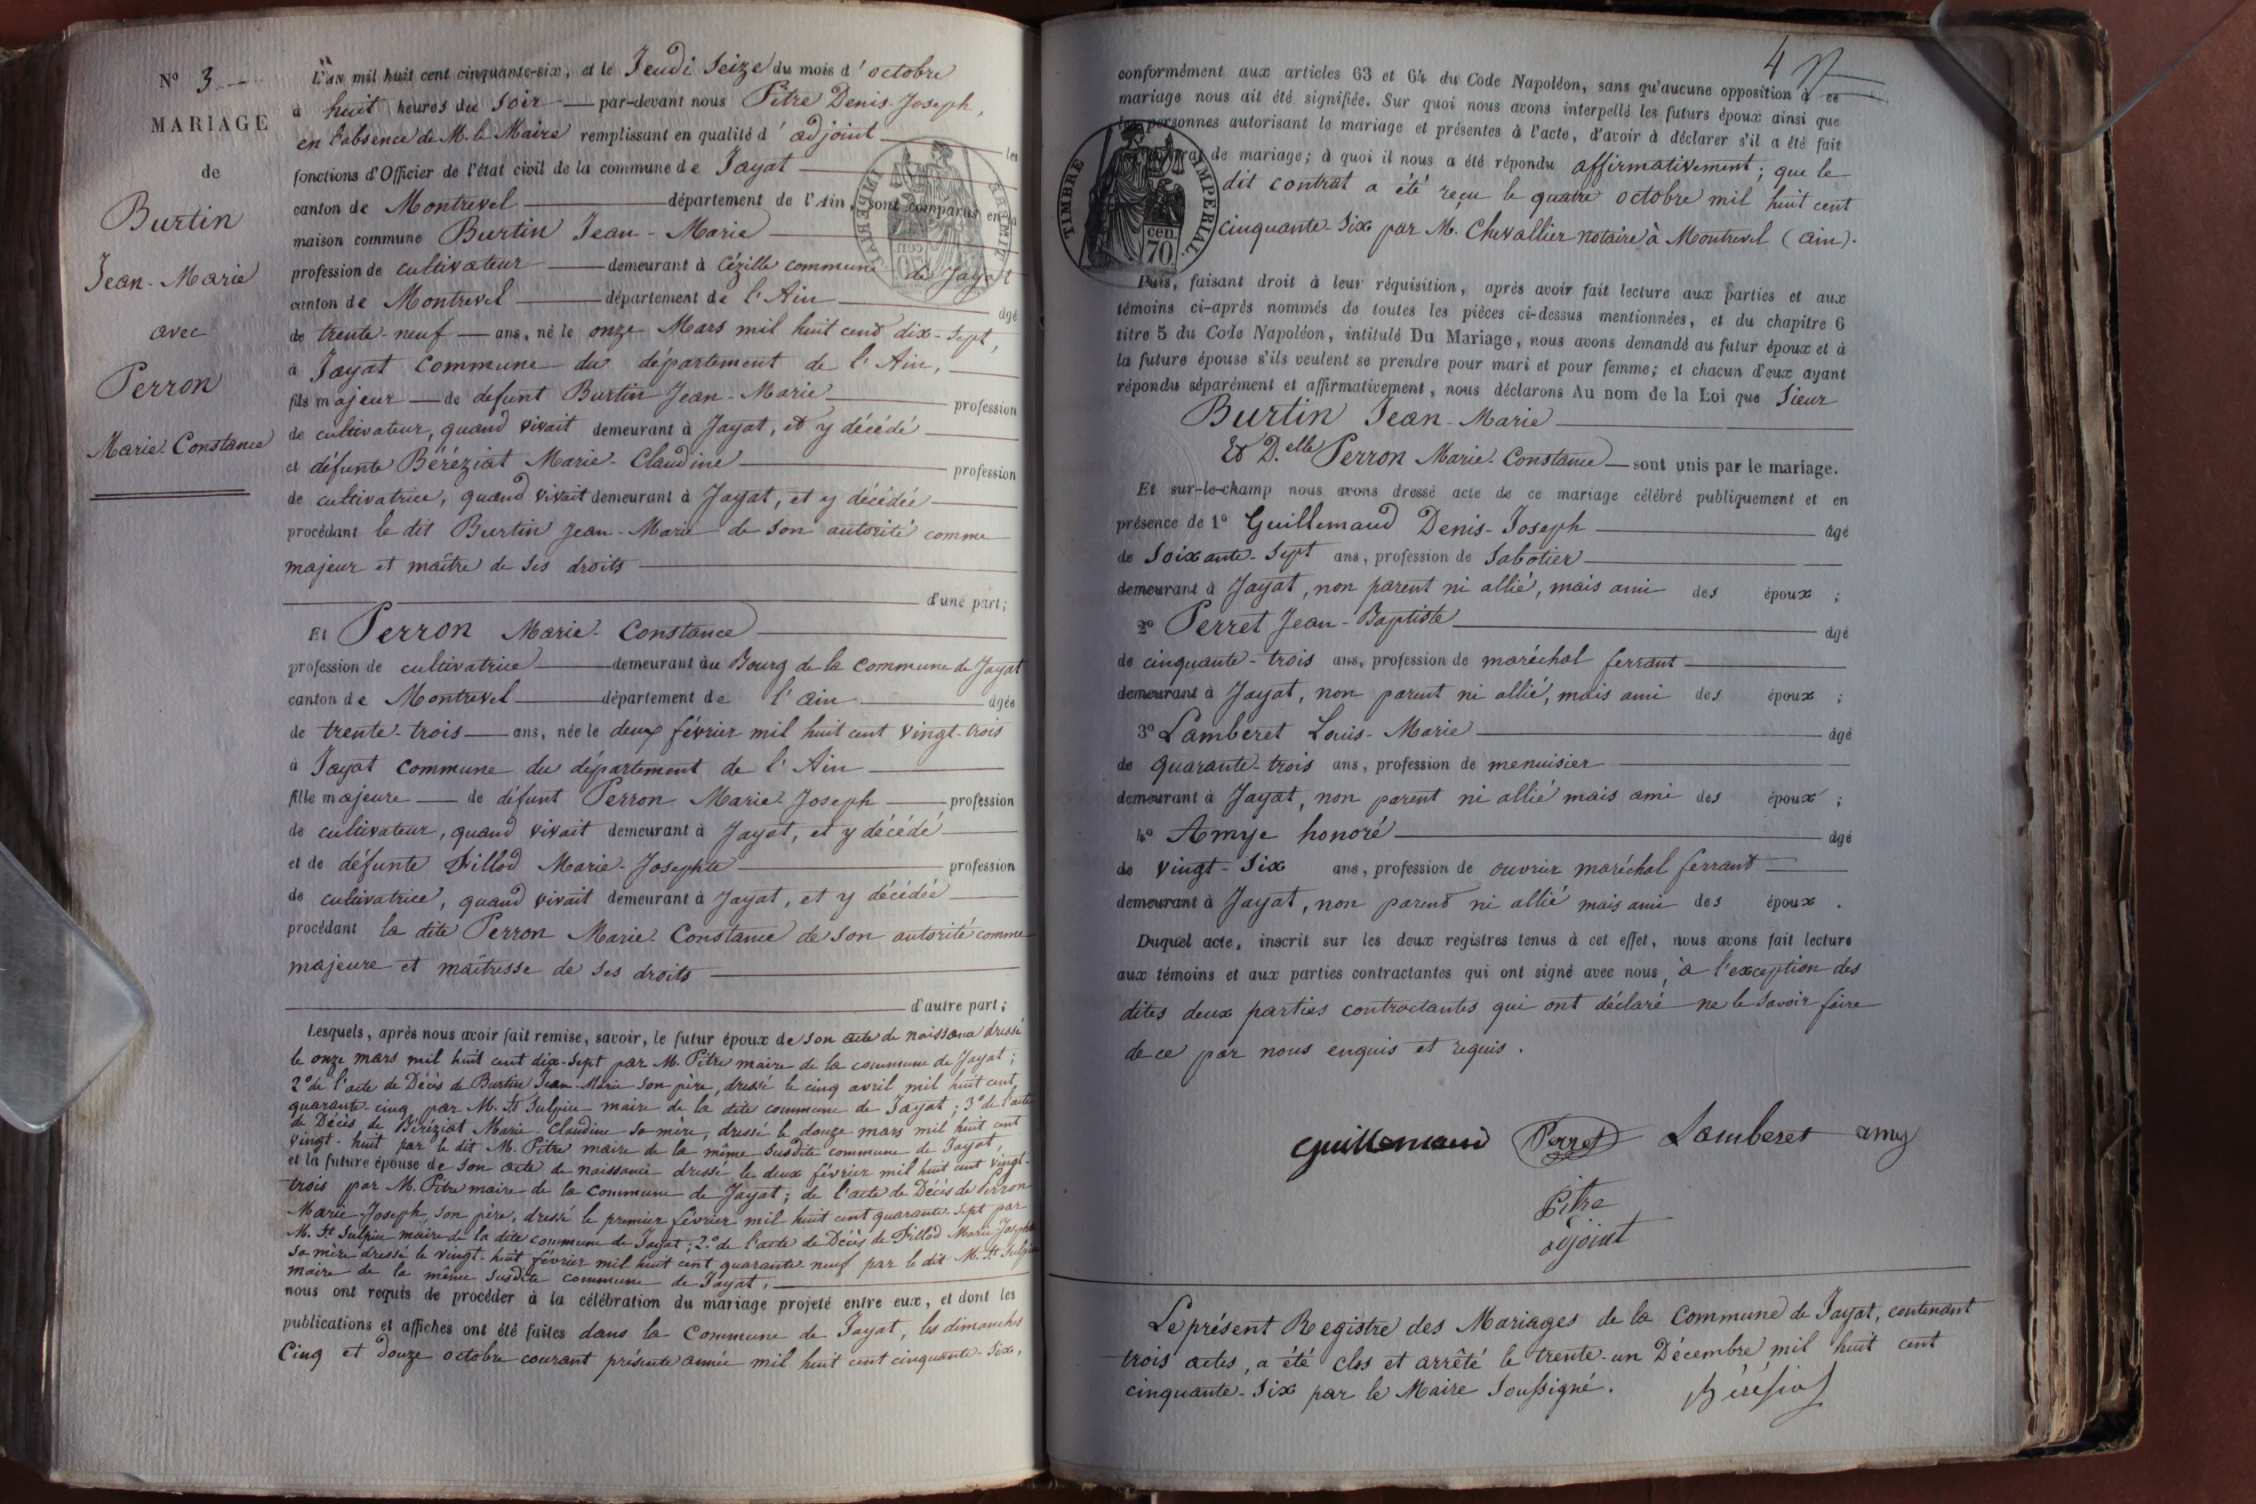 N° 3
MARIAGE
de
Burtin
Jean-Marie
avec
Perron
Marie-Constance
L'an mil huit cent cinquante-six, et le Jeudi Seize du mois d'octobre
à huit heures du soir par-devant nous Pitre Denis-Joseph,
en l'absence de M. le Maire remplissant en qualité d'adjoint les
fonctions d'Officier de l'état civil de la commune de Jayat
canton de Montrevel département de l'Ain, sont comparus en la
maison commune Burtin Jean-Marie
profession de cultivateur demeurant à Cézille commune de Jayat
canton de Montrevel département de l'Ain âgé
de trente-neuf ans, né le onze Mars mil huit cent dix-sept,
à Jayat commune du département de l'Ain,
fils majeur de défunt Burtin Jean-Marie profession
de cultivateur, quand vivait demeurant à Jayat, et y décédé
et défunte Béréziat Marie-Claudine profession
de cultivatrice, quand vivait demeurant à Jayat, et y décédée
procédant le dit Burtin Jean-Marie de son autorité comme
majeur et maître de ses droits
d'une part;
Et Perron Marie-Constance
profession de cultivatrice demeurant au Bourg de la commune de Jayat
canton de Montrevel département de l'ain âgée
de trente-trois ans, née le deux février mil huit cent vingt-trois
à Jayat commune du département de l'Ain
fille majeure de défunt Perron Marie-Joseph profession
de cultivateur, quand vivait demeurant à Jayat, et y décédé
et de défunte Fillod Marie-Josephte profession
de cultivatrice, quand vivait demeurant à Jayat, et y décédée
procédant la dite Perron Marie-Constance de son autorité comme
majeure et maîtresse de ses droits
d'autre part;
Lesquels, après nous avoir fait remise, savoir, le futur époux de son acte de naissance dressé
le onze mars mil huit cent dix-sept par M. Pitre maire de la commune de Jayat;
2° de l'acte de Décès de Burtin Jean-Marie son père, dressé le cinq avril mil huit cent
quarante-cinq par M. St Sulpice maire de la dite commune de Jayat; 3° de l'acte
de Décès de Béréziat Marie-Claudine sa mère, dressé le douze mars mil huit cent
vingt-huit par le dit M. Pitre maire de la même susdite commune de Jayat
et la future épouse de son acte de naissance dressé le deux février mil huit cent vingt-
trois par M. Pitre maire de la commune de Jayat; de l'acte de Décès de Perron
Marie-Joseph son père, dressé le premier février mil huit cent quarante-sept par
M. St Sulpice maire de la dite commune de Jayat; 2° de l'acte de Décès de Fillod Marie-Josephte
sa mère dressé le vingt-huit février mil huit cent quarante-neuf par le dit M. St Sulpice
maire de la même susdite commune de Jayat,
nous ont requis de procéder à la célébration du mariage projeté entre eux, et dont les
publications et affiches ont été faites dans la Commune de Jayat, les dimanches
Cinq et douze octobre courant présente année mil huit cent cinquante-six,
4
conformément aux articles 63 et 64 du Code Napoléon, sans qu'aucune opposition à ce
mariage nous ait été signifiée. Sur quoi nous avons interpellé les futurs époux ainsi que
les personnes autorisant le mariage et présentes à l'acte, d'avoir à déclarer s'il a été fait
contrat de mariage; à quoi il nous a été répondu affirmativement; que le
dit contrat a été reçu le quatre octobre mil huit cent
cinquante-six par M. Chevallier notaire à Montrevel (ain).
TIMBRE IMPERIAL
cen.
70.
Puis, faisant droit à leur réquisition, après avoir fait lecture aux parties et aux
témoins ci-après nommés de toutes les pièces ci-dessus mentionnées, et du chapitre 6
titre 5 du Code Napoléon, intitulé Du Mariage, nous avons demandé au futur époux et à
la future épouse s'ils veulent se prendre pour mari et pour femme; et chacun d'eux ayant
répondu séparément et affirmativement, nous déclarons Au nom de la Loi que Sieur
Burtin Jean-Marie
Et D.elle Perron Marie-Constance sont unis par le mariage.
Et sur-le-champ nous avons dressé acte de ce mariage célébré publiquement et en
présence de 1° Guillemaud Denis-Joseph âgé
de soixante-sept ans, profession de sabotier
demeurant à Jayat, non parent ni allié, mais ami des époux;
2° Perret Jean-Baptiste âgé
de cinquante-trois ans, profession de maréchal ferrant
demeurant à Jayat, non parent ni allié, mais ami des époux;
3° Lamberet Louis-Marie âgé
de quarante-trois ans, profession de menuisier
demeurant à Jayat, non parent ni allié mais ami des époux;
4° Amye honoré âgé
de vingt-six ans, profession de ouvrier maréchal ferrant
demeurant à Jayat, non parent ni allié mais ami des époux.
Duquel acte, inscrit sur les deux registres tenus à cet effet, nous avons fait lecture
aux témoins et aux parties contractantes qui ont signé avec nous, à l'exception des
dites deux parties contractantes qui ont déclaré ne le savoir faire
de ce par nous enquis et requis.
Guillemaud Perret Lamberet amy
Pitre
adjoint
Le présent Registre des Mariages de la Commune de Jayat, contenant
trois actes, a été clos et arrêté le trente-un Décembre mil huit cent
cinquante-six par le Maire soussigné.